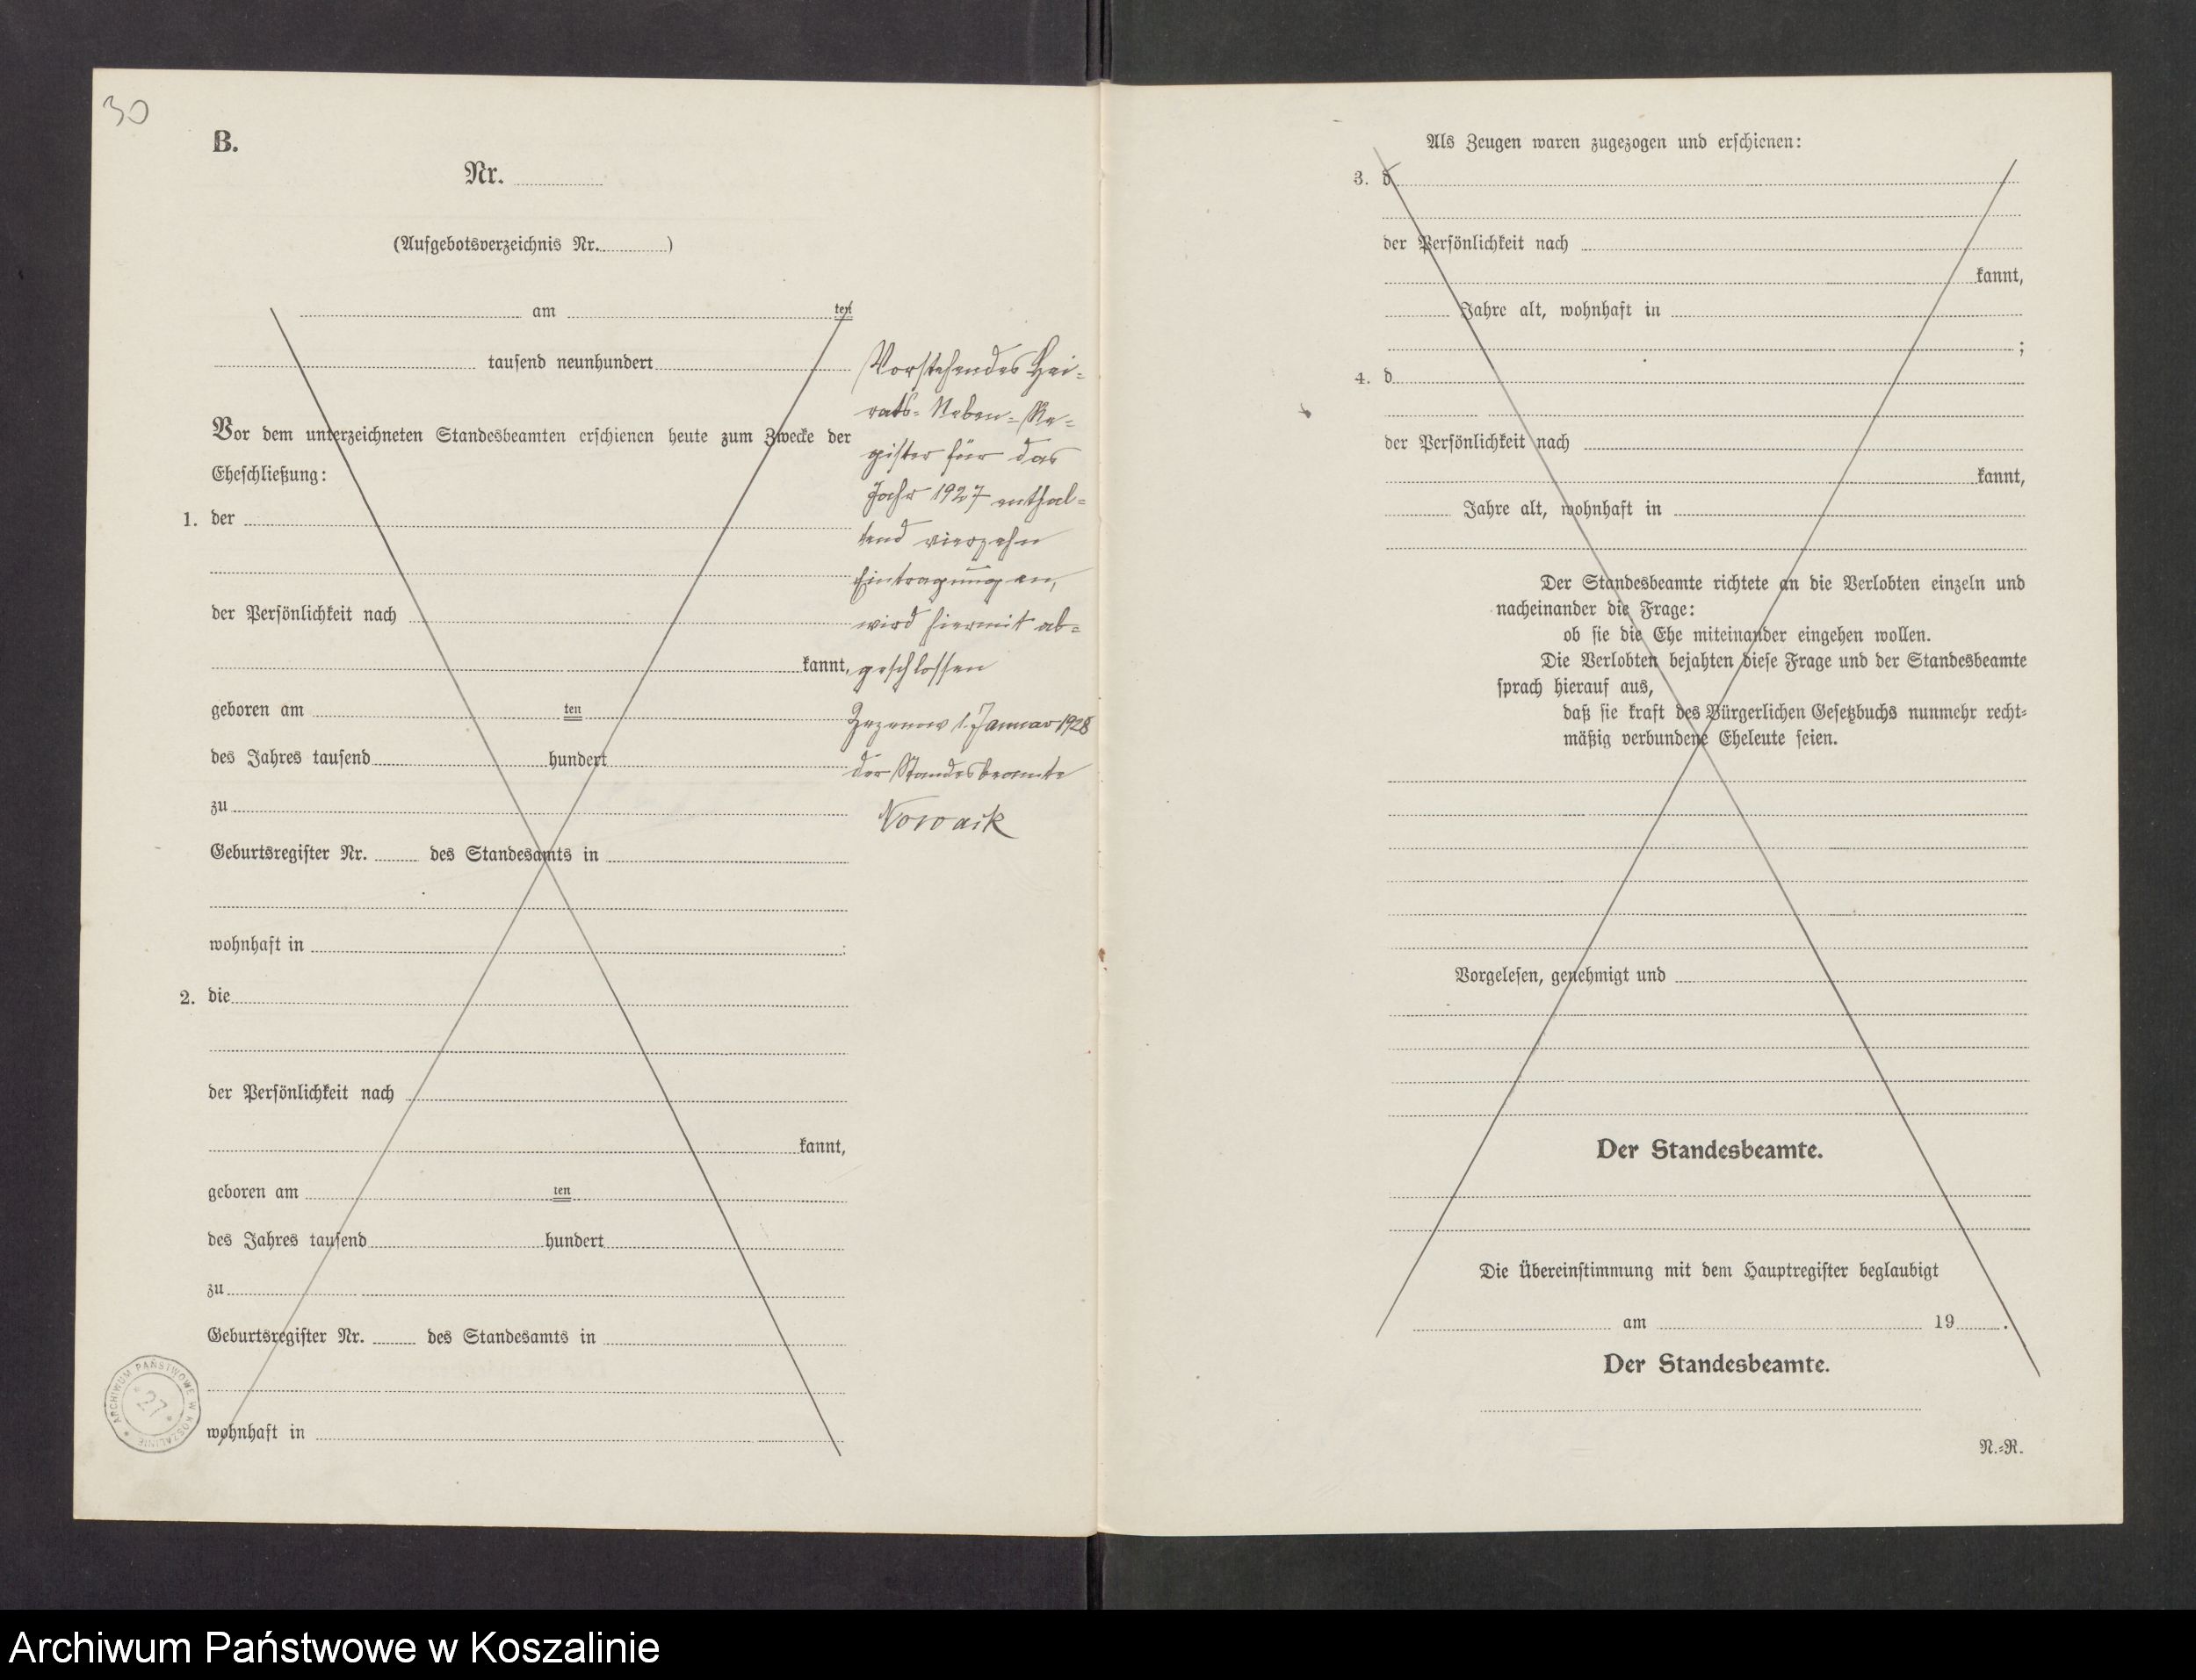 30
B.
Nr.
(Aufgebotsverzeichnis Nr. )
am ten
tausend neunhundert
Vor dem unterzeichneten Standesbeamten erschienen heute zum Zwecke der
Eheschließung:
1. der
der Persönlichkeit nach
kannt,
geboren am ten
des Jahres tausend hundert
zu
Geburtsregister Nr. des Standesamts in
wohnhaft in ;
2. die
der Persönlichkeit nach
kannt,
geboren am ten
des Jahres tausend hundert
zu
Geburtsregister Nr. des Standesamts in
wohnhaft in
Vorstehendes Hei-
rats-Neben-Re-
gister für das
Jahr 1927 enthal-
tend vierzehn
Eintragungen,
wird hiermit ab-
geschlossen
Zezenow 1. Januar 1928
der Standesbeamte
Nowack
ARCHIWUM PAŃSTWOWE W KOSZALINIE
27
Als Zeugen waren zugezogen und erschienen:
3. d
der Persönlichkeit nach
kannt,
Jahre alt, wohnhaft in
;
4. d
der Persönlichkeit nach
kannt,
Jahre alt, wohnhaft in
Der Standesbeamte richtete an die Verlobten einzeln und
nacheinander die Frage:
ob sie die Ehe miteinander eingehen wollen.
Die Verlobten bejahten diese Frage und der Standesbeamte
sprach hierauf aus,
daß sie kraft des Bürgerlichen Gesetzbuchs nunmehr recht-
mäßig verbundene Eheleute seien.
Vorgelesen, genehmigt und
Der Standesbeamte.
Die Übereinstimmung mit dem Hauptregister beglaubigt
am 19 .
Der Standesbeamte.
N.-R.
Archiwum Państwowe w Koszalinie